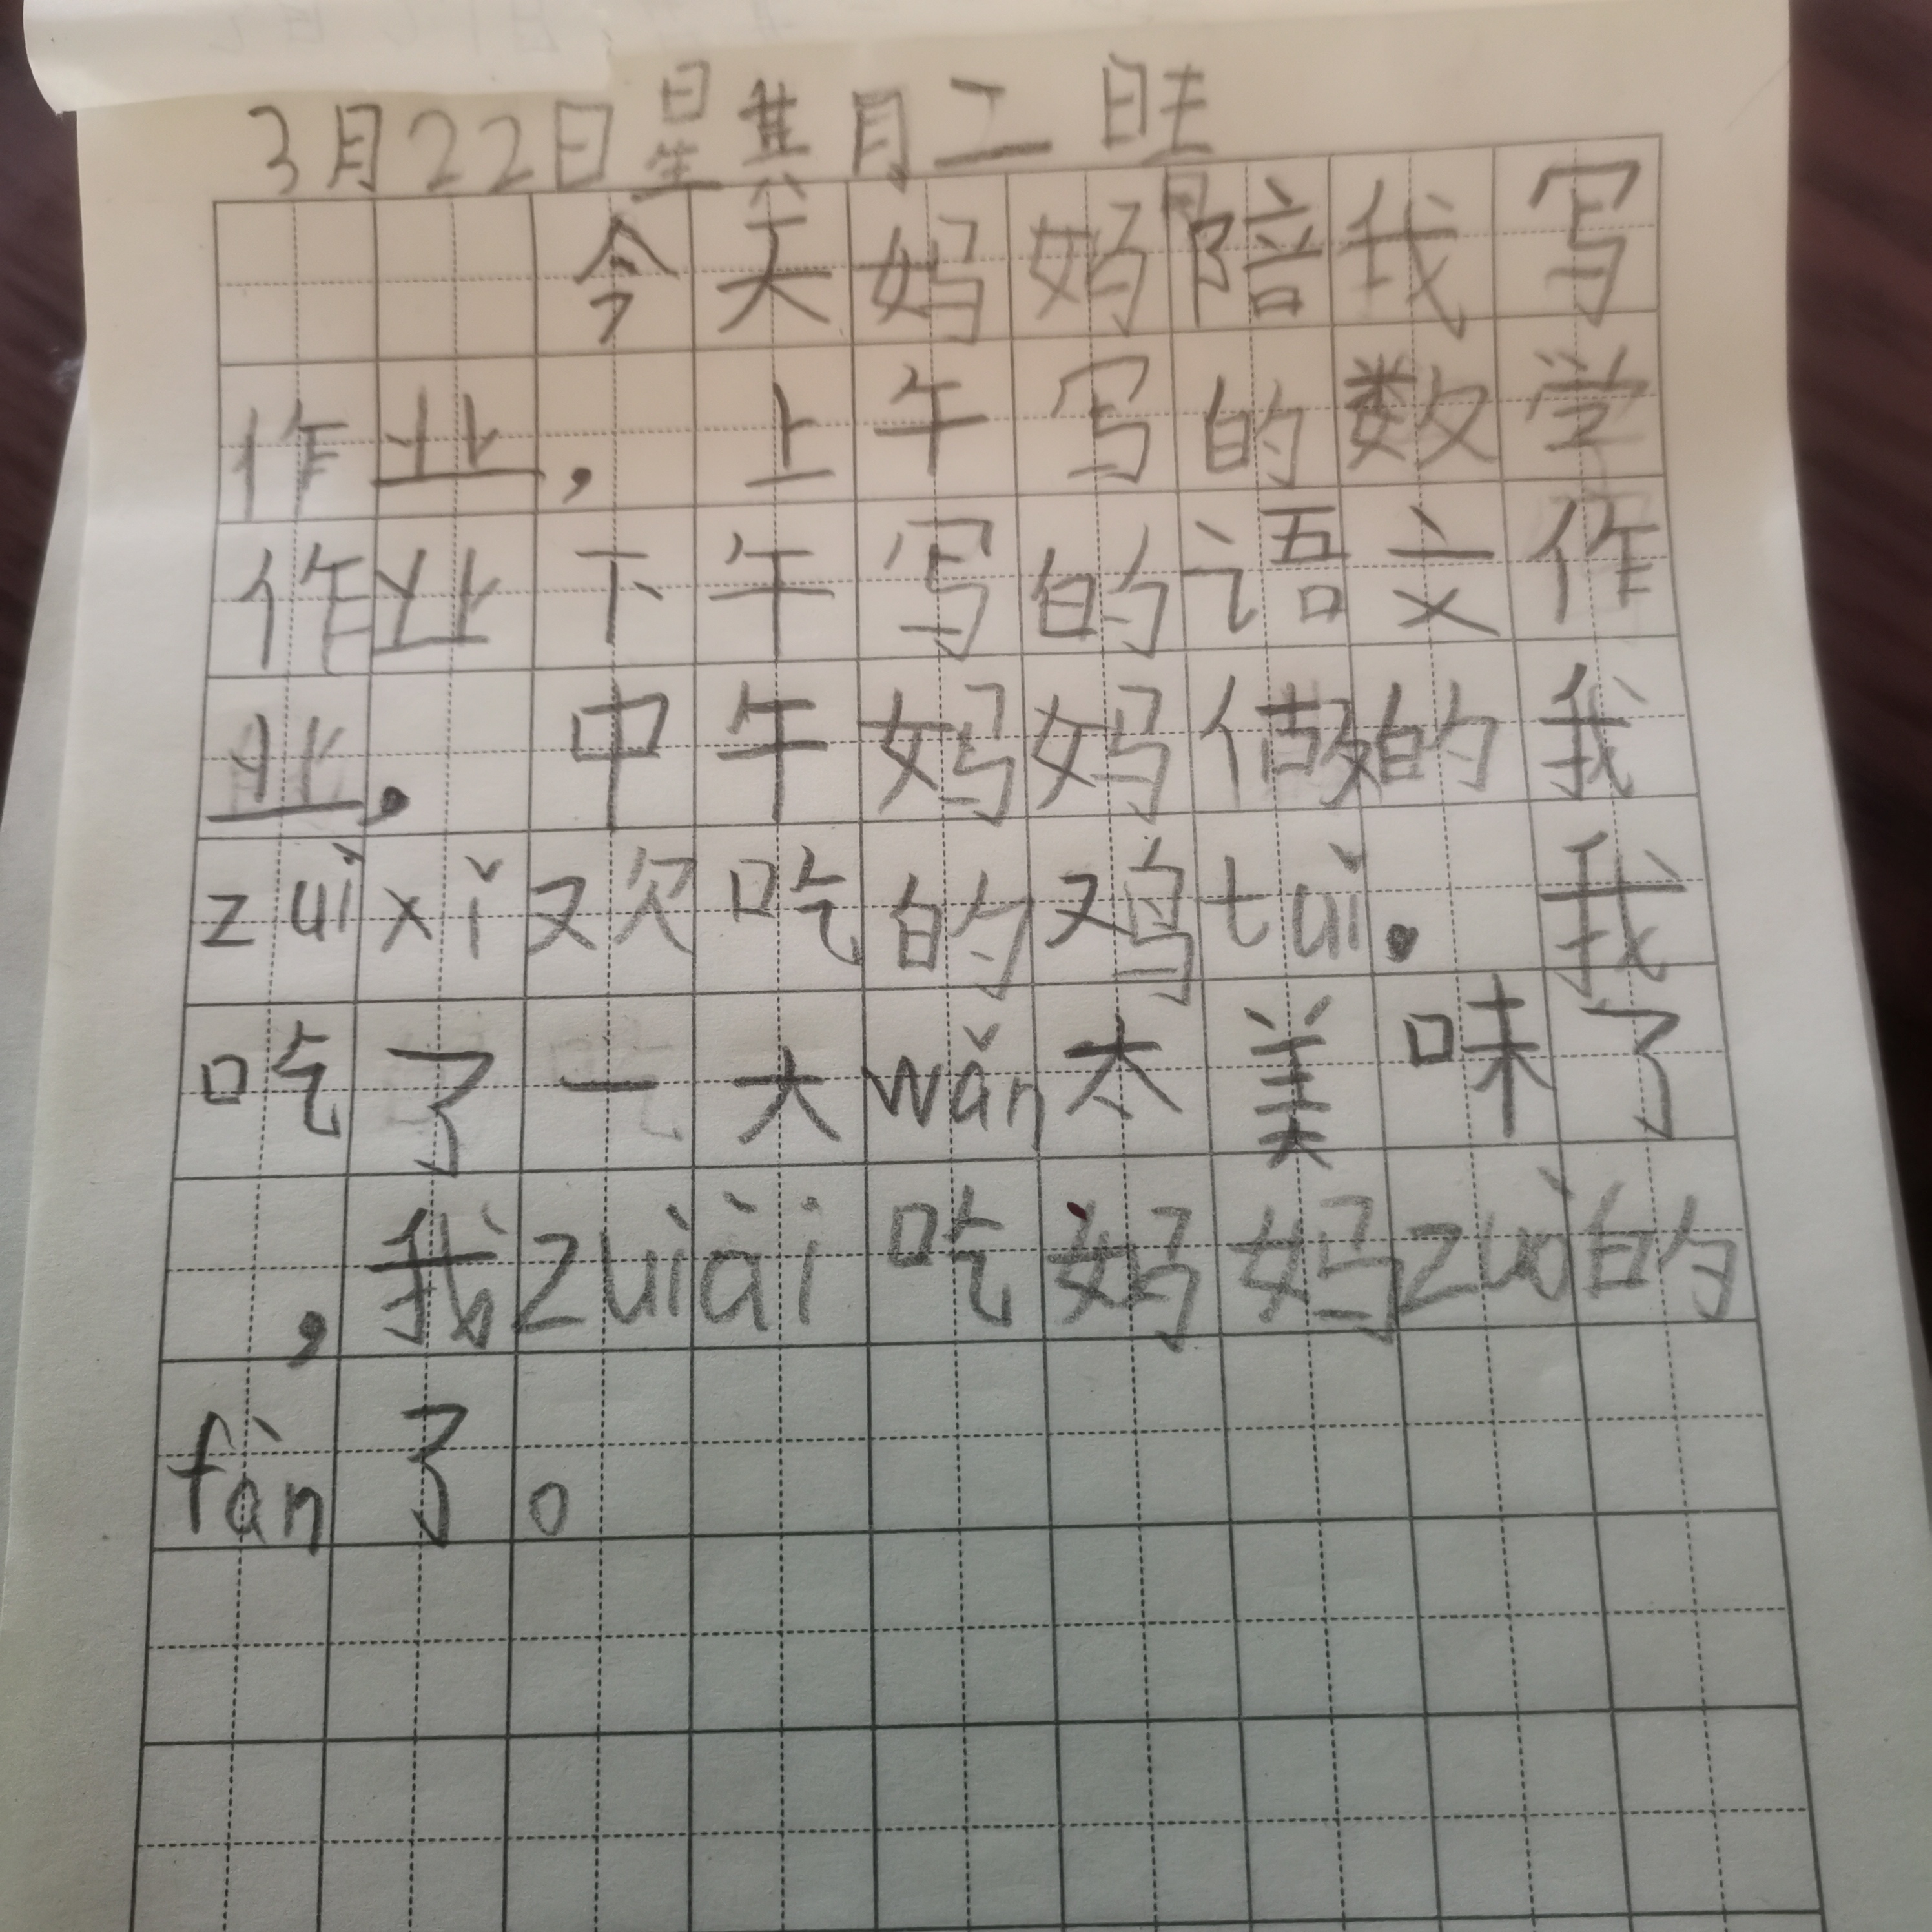 3月22日星期二 晴
今天妈妈陪我写
作业，上午写的数学
作业下午写的语文作
业，中午妈妈做的我
zuì xǐ 欢吃的鸡tuǐ，我
吃了一大wǎn太美味了
，我zuì ài 吃妈妈zuò的
fàn了。